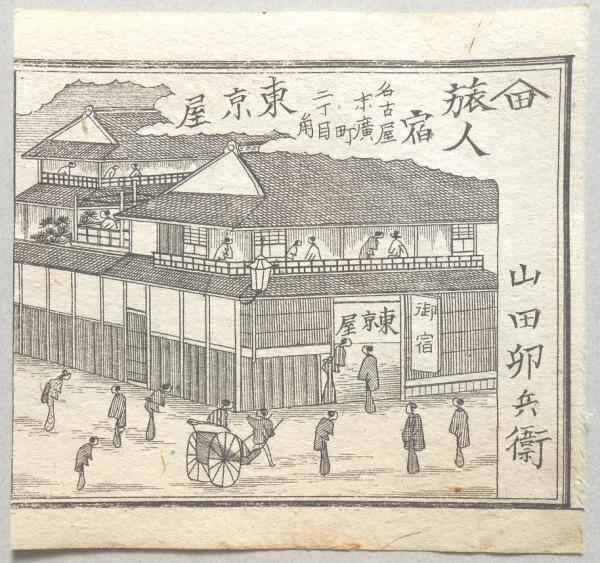 田
旅人宿
名古屋
末廣町
二丁目角
東京屋
山田卯兵衛
東京屋
御宿